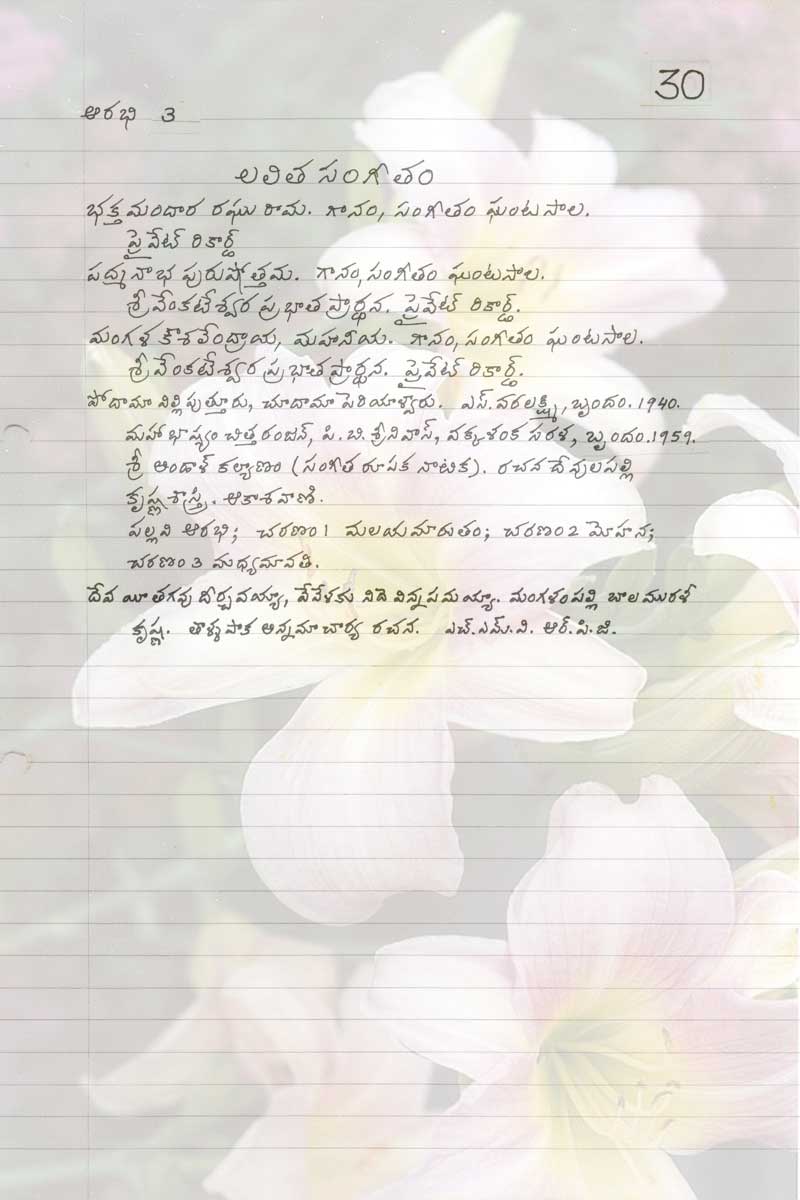 30
ఆరభి 3
లలిత సంగీతం
భక్త మందార రఘు రామ. గానం, సంగీతం ఘంటసాల.
ప్రైవేట్ రికార్డ్
పద్మనాభ పురుషోత్తమ. గానం, సంగీతం ఘంటసాల.
శ్రీ వేంకటేశ్వర ప్రభాత ప్రార్థన. ప్రైవేట్ రికార్డ్.
మంగళ కౌశవేంద్రాయ, మహనీయ. గానం, సంగీతం ఘంటసాల.
శ్రీ వేంకటేశ్వర ప్రభాత ప్రార్థన. ప్రైవేట్ రికార్డ్.
పోదామా విల్లిపుత్తూరు, చూదామా పెరియాళ్వారు. ఎస్. వరలక్ష్మి, బృందం. 1940.
మహాభాష్యం చిత్తరంజన్, పి. బి. శ్రీనివాస్, వక్కళంక సరళ, బృందం. 1959.
శ్రీ ఆండాళ్ కల్యాణం (సంగీత రూపక నాటిక). రచన దేవులపల్లి
కృష్ణ శాస్త్రి. ఆకాశవాణి.
పల్లవి ఆరభి; చరణం 1 మలయమారుతం; చరణం 2 మోహన;
చరణం 3 మధ్యమావతి.
దేవ యీ తగవు దీర్చవయ్యా, వేవేళకు నిదె విన్నపమయ్యా. మంగళంపల్లి బాల మురళీ
కృష్ణ. తాళ్ళపాక అన్నమాచార్య రచన. ఎచ్. ఎమ్. వి. ఆర్. పి. జి.